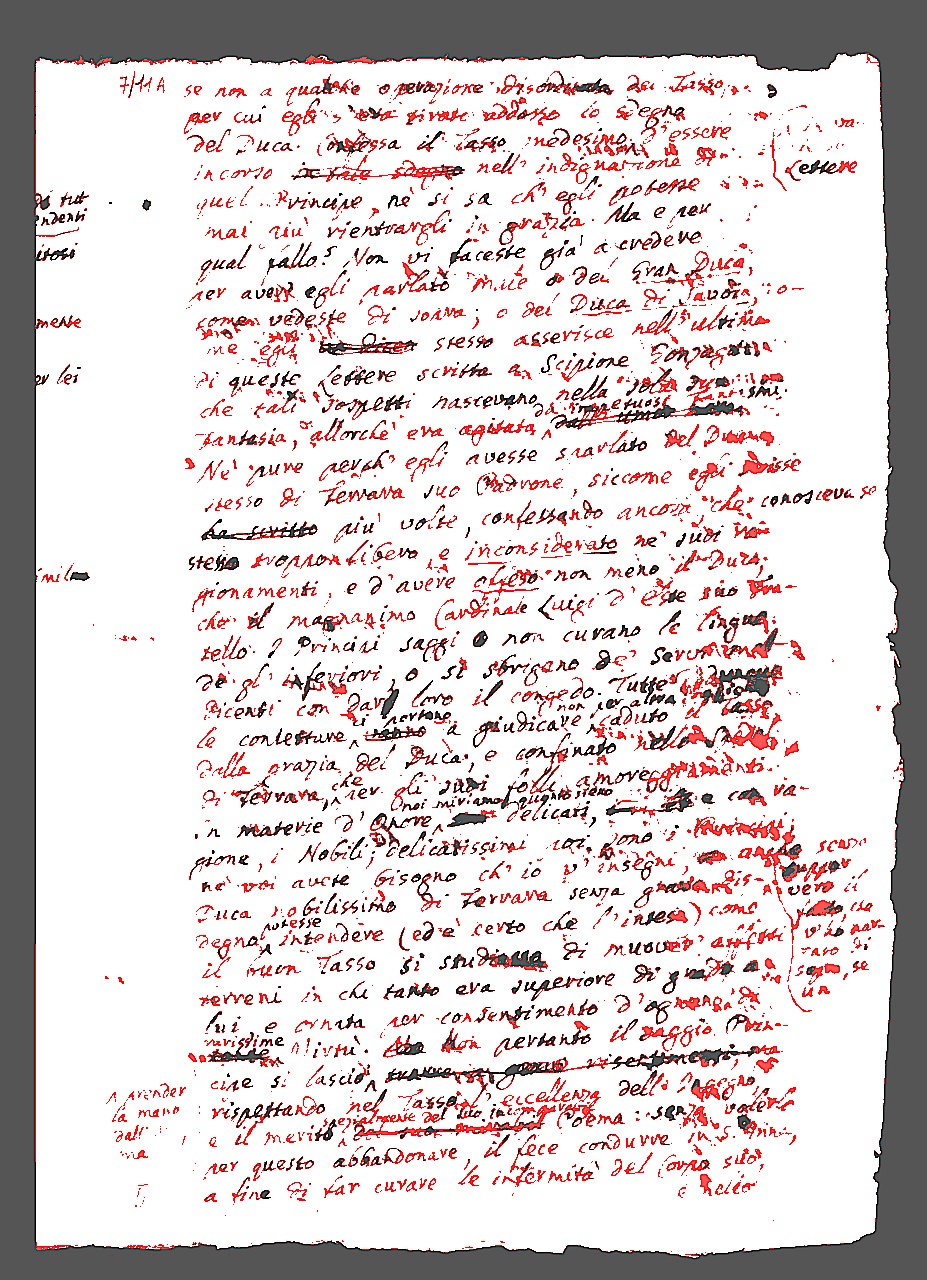 7/11A
se non a qualche operazione disordinata del Tasso
per cui egli s'era tirato addosso lo sdegno
del Duca. Confessa il Tasso medesimo d'essere
incorso in tale sdegno nell' indignazione di
quel Principe, nè si sa ch' egli potesse
mai più rientrargli in grazia. Ma e per
qual fallo? Non vi faceste già a credere
per aver egli parlato male o del Gran Duca,
come vedeste di sopra; o del Duca di Savoia,
egli stesso asserisce nell' ultima
di queste Lettere scritta a Scipione Gonzaga
che tali sospetti nascevano nella sola sua
fantasia, allorchè era agitata da impetuosi fantasmi.
Nè pure perch' egli avesse sparlato del Duca
stesso di Ferrara suo Padrone, siccome egli
ha scritto più volte, confessando ancora, che conosceva se
stesso troppo libero, e inconsiderato ne' suoi ra-
gionamenti, e d'avere offeso non meno il Duca,
che il magnanimo Cardinale Luigi d'Este suo Fra-
tello. I Principi saggi o non curano le lingue
de gl' inferiori, o si sbrigano de' servi
dicenti con dar loro il congedo. Tutte dunque
le conietture ci portano a giudicare non per altra caduto il Tasso
dalla grazia del Duca, e confinato nello Spedale
di Ferrara, che per gli suoi folli amoreggiamenti.
in materie d' Onore noi miriamo quanto sieno delicati, e con ra-
gione, i Nobili; delicatissimi poi sono i Principi,
nè voi avete bisogno ch' io v' insegni,
Duca nobilissimo di Ferrara senza grave dis-
degno potesse intendere (ed è certo che l' intese) come
il buon Tasso si studiava di muover affetti
terreni in chi tanto era superiore di grado a
lui e ornata per consentimento d'ognuno di
rarissime Virtù. Non pertanto il saggio Prin-
cipe si lasciò
rispettando nel Tasso l' eccellenza dell' Ingegno,
e il merito specialmente del suo incomparabile Poema: senza volerlo
per questo abbandonare, il fece condurre in S. Anna,
a fine di far curare le infermità del Corpo suo,
e nello
Lettere
di tut
endenti
itosi
mente
er lei
imile
senza
vero il
fatto, che
v'ho nar-
rato di
sopra, se
un
A prender
la mano
dall'
ma